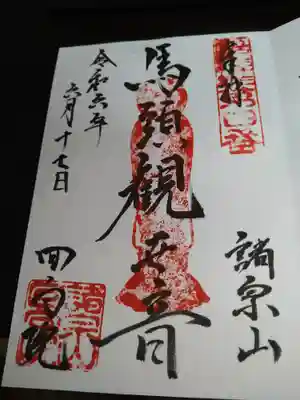 奉拝
諸宗山
馬頭観世音
回向院
令和六年
六月十七日